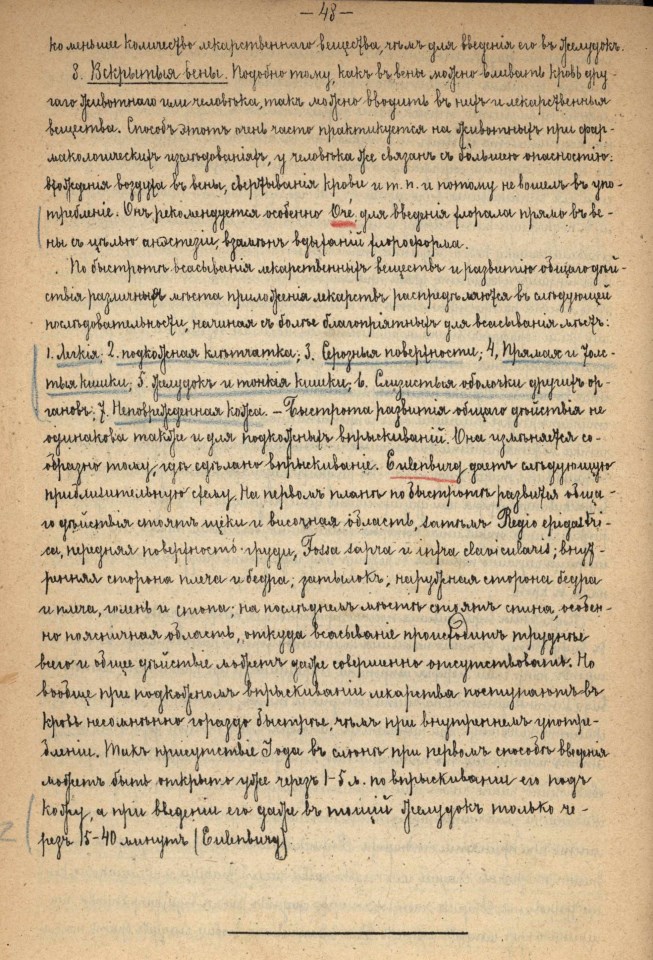 — 48 —
ко меньшее количество лекарственнаго вещества, чѣмъ для введенія его въ желудокъ.
8. Вскрытыя вены. Подобно тому, какъ въ вены можно вливать кровь дру-
гаго животнаго или человѣка, такъ можно вводить въ нихъ и лекарственныя
вещества. Способъ этотъ очень часто практикуется на животныхъ при фар-
макологическихъ изслѣдованіяхъ, у человѣка же связанъ съ большею опасностію:
вхожденія воздуха въ вены, свертыванія крови и т. п. и потому не вошелъ въ упо-
требленіе. Онъ рекомендуется особенно Oré, для введенія хлорала прямо въ ве-
ны съ цѣлью анэстезіи, взамѣнъ вдыханій хлороформа.
По быстротѣ всасыванія лекарственныхъ веществъ и развитію общаго дѣй-
ствія различныя мѣста приложенія лекарствъ распредѣляются въ слѣдующей
послѣдовательности, начиная съ болѣе благопріятныхъ для всасыванія мѣстъ:
1. Легкія; 2. подкожная клѣтчатка; 3. Серозныя поверхности; 4. Прямая и толс-
тыя кишки; 5. Желудокъ и тонкія кишки; 6. Слизистыя оболочки другихъ ор-
гановъ; 7. Неповрежденная кожа. — Быстрота развитія общаго дѣйствія не
одинакова также и для подкожныхъ впрыскиваній. Она измѣняется со-
образно тому, гдѣ сдѣлано впрыскиваніе. Eulenburg даетъ слѣдующую
приблизительную схему. На первомъ планѣ по быстротѣ развитія обща-
го дѣйствія стоятъ щеки и височная область, затѣмъ Regio epigastri-
ca, передняя поверхность груди, Fossa supra и infra clavicularis; внут-
ренняя сторона плеча и бедра; затылокъ; наружная сторона бедра
и плеча, голень и стопа; на послѣднемъ мѣстѣ стоитъ спина, особен-
но поясничная область, откуда всасываніе происходитъ труднѣе
всего и общее дѣйствіе можетъ даже совершенно отсутствовать. Но
вообще при подкожномъ впрыскиваніи лекарства поступаютъ въ
кровь несомнѣнно гораздо быстрѣе, чѣмъ при внутреннемъ употре-
бленіи. Такъ присутствіе Іода въ слюнѣ при первомъ способѣ введенія
можетъ быть открыто уже черезъ 1-5 м. по впрыскиваніи его подъ
кожу, а при введеніи его даже въ тощій желудокъ только че-
резъ 15-40 минутъ (Eulenburg)